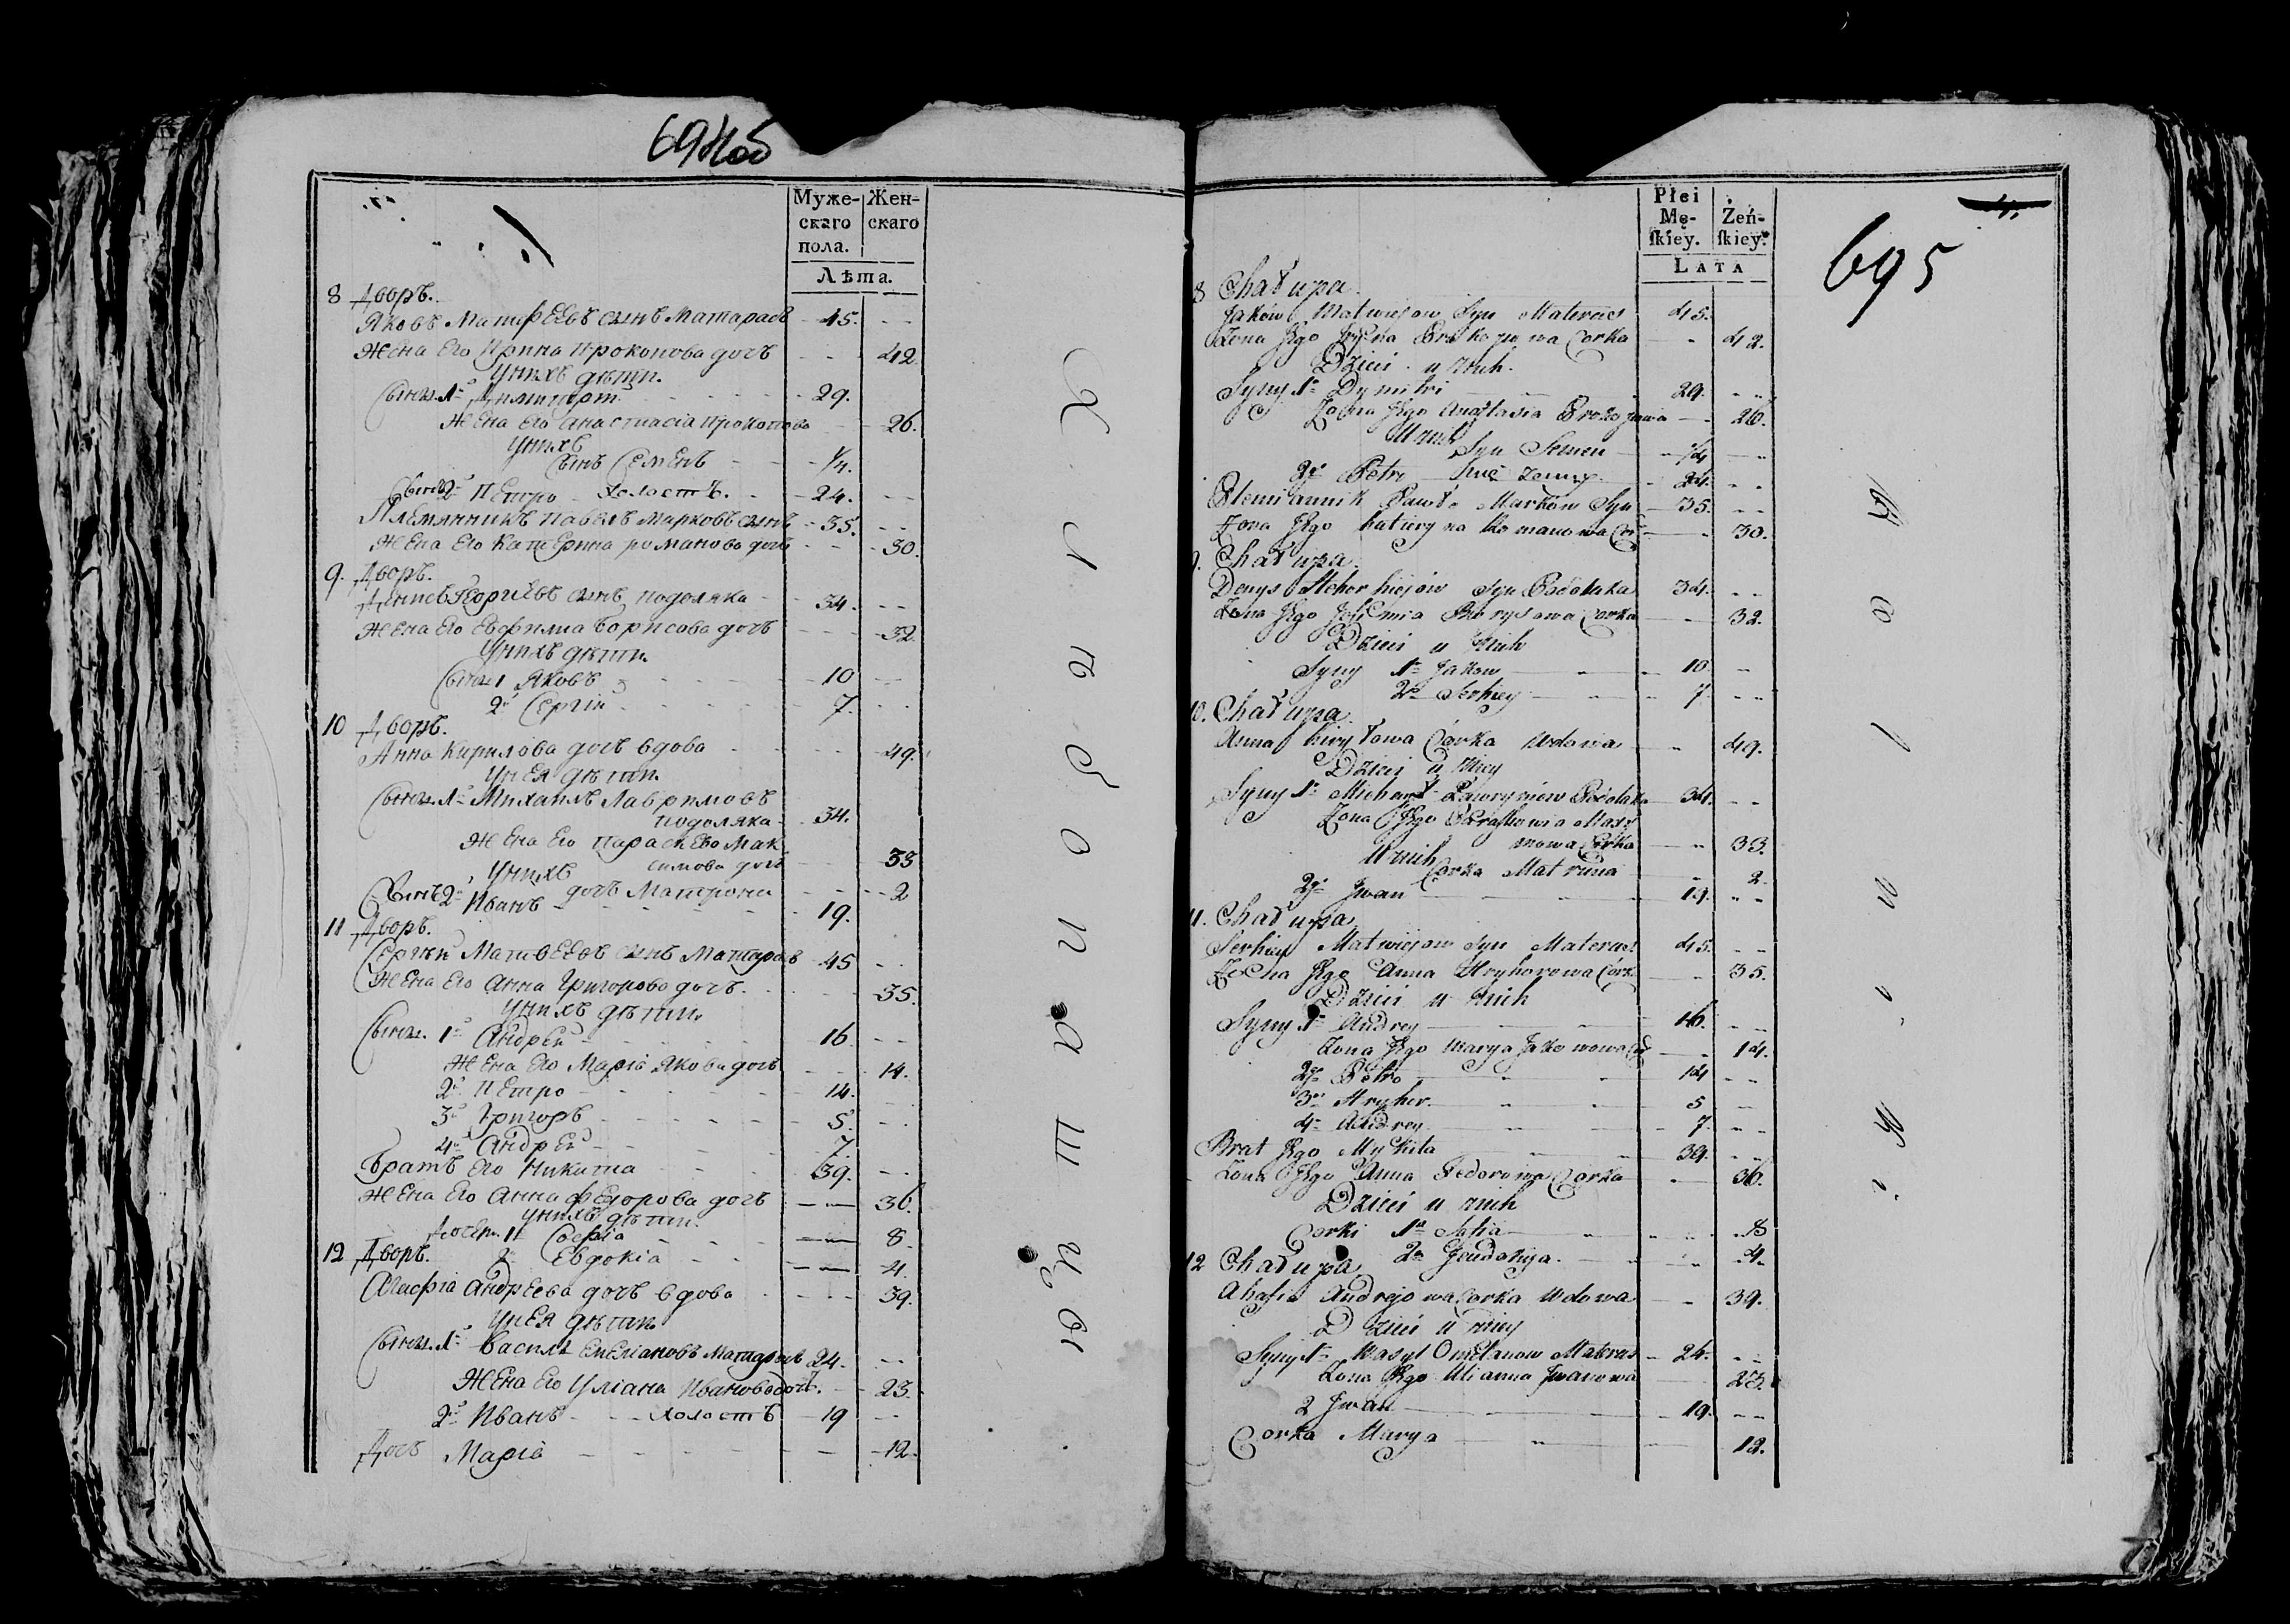 694об
Муже-
скаго
пола.
Жен-
скаго
Лѣта.
8 Дворъ.
Яковъ Матфеевъ сынъ Матарасъ 45.
Жена Его Ирина Прокопова дочь 42
Унихъ дѣти.
Сыны 1й Димитрій 29.
Жена Его Анастасіа Прокопова 26.
Унихъ
Сынъ Семенъ 1/4.
Сынъ 2й Петро Холостъ. 24.
Племянникъ Павелъ Марковъ сынъ 35.
Жена Его Катерина романова дочь 30.
9. Дворъ.
Денисъ Георгіевъ сынъ подоляка 34.
Жена Его Евфимиа Борисова дочь 32
Унихъ дѣти.
Сыны 1 Яковъ 10
2й Сергій 7.
10 Дворъ.
Анна Кирилова дочь вдова 49.
Унея дѣти.
Сыны 1й Михаилъ Лавримовъ
подоляка 34.
Жена Его Параскево Мак
симова дочь 33
Унихъ
дочь Матрона 2
Сынъ 2й Иванъ 19.
11 Дворъ.
Сергѣй Матвеевъ сынъ Матарасъ 45
Жена Его Анна Григорова дочь 35.
Унихъ дѣти.
Сыны. 1й Андрей 16
Жена Его Маріа Якова дочь 14.
2й Петро 14.
3й Григоръ 5.
4й Андрей 7.
Братъ Его Никита 39.
Жена Его Анна Федорова дочь 36.
унихъ дѣти.
Дочери. 1я Софіа 8
2я Евдокіа 4.
12 Дворъ.
Агафіа Андреева дочь вдова 39.
Унея дѣти
Сыны 1й Василь Емеліановъ Матарасъ 24.
Жена Его Уліана Иванова дочь. 23
2й Иванъ Холостъ 19
Дочь Маріа 12.
Хлѣбопашцы
695
Płci
Mę-
ſkiey.
Żeń-
ſkiey.
LATA
8 Chałupa.
Jakow Matwiejow Syn Materas 45.
Żona Jego Jryna Prokopowa Corka 42.
Dzieci u nich.
Syny 1o Dymitri 29.
Żona Jego Anastasia Prokopowa 26.
U nich
Syn Semen 1/4
2gi Petro 24.
Plemiannik Pawło Markow Syn 35.
Żona Jego Kateryna Romanowa Cor 30.
9. Chałupa.
Denys Hehorhiejow Syn Podolaka 34.
Żona Jego Jefiemia Borysowa Corka 32.
Dzieci u nich
Syny 1o Jakow 10.
2o Serhiey 7.
10. Chałupa.
Anna Kiryłowa Córka Wdowa 49.
Dzieci u niey
Syny 1o Michał Ławryniow Podolaka 34.
Żona Jego Paraskowia Maxi
mowa Córka 33.
U nich
Corka Matruna 2.
2gi Jwan 19.
11. Chałupa
Serhiey Matwiejow Syn Materas 45.
Żona Jego Anna Hryhorowa Córk 35.
Dzieci u nich
Syny 1o Andrey 16.
Żona Jego Marya Jakowowa Co 14.
2gi Petro 14
3o Hryhor. 5
4o Andrey 7.
Brat Jego Mykita 39.
Żona Jego Anna Fedorowa Corka 36.
Dzieci u nich
Corki 1a Sofia 8
2a Jeudokija. 4.
12 Chałupa
Ahafia Andrejowa Corka Wdowa 39.
Dzieci u niey
Syny 1o Wasyl Omelanow Materas 24.
Żona Jego Ulianna Jwanowa 23.
2 Jwan 19.
Corka Marya 12.